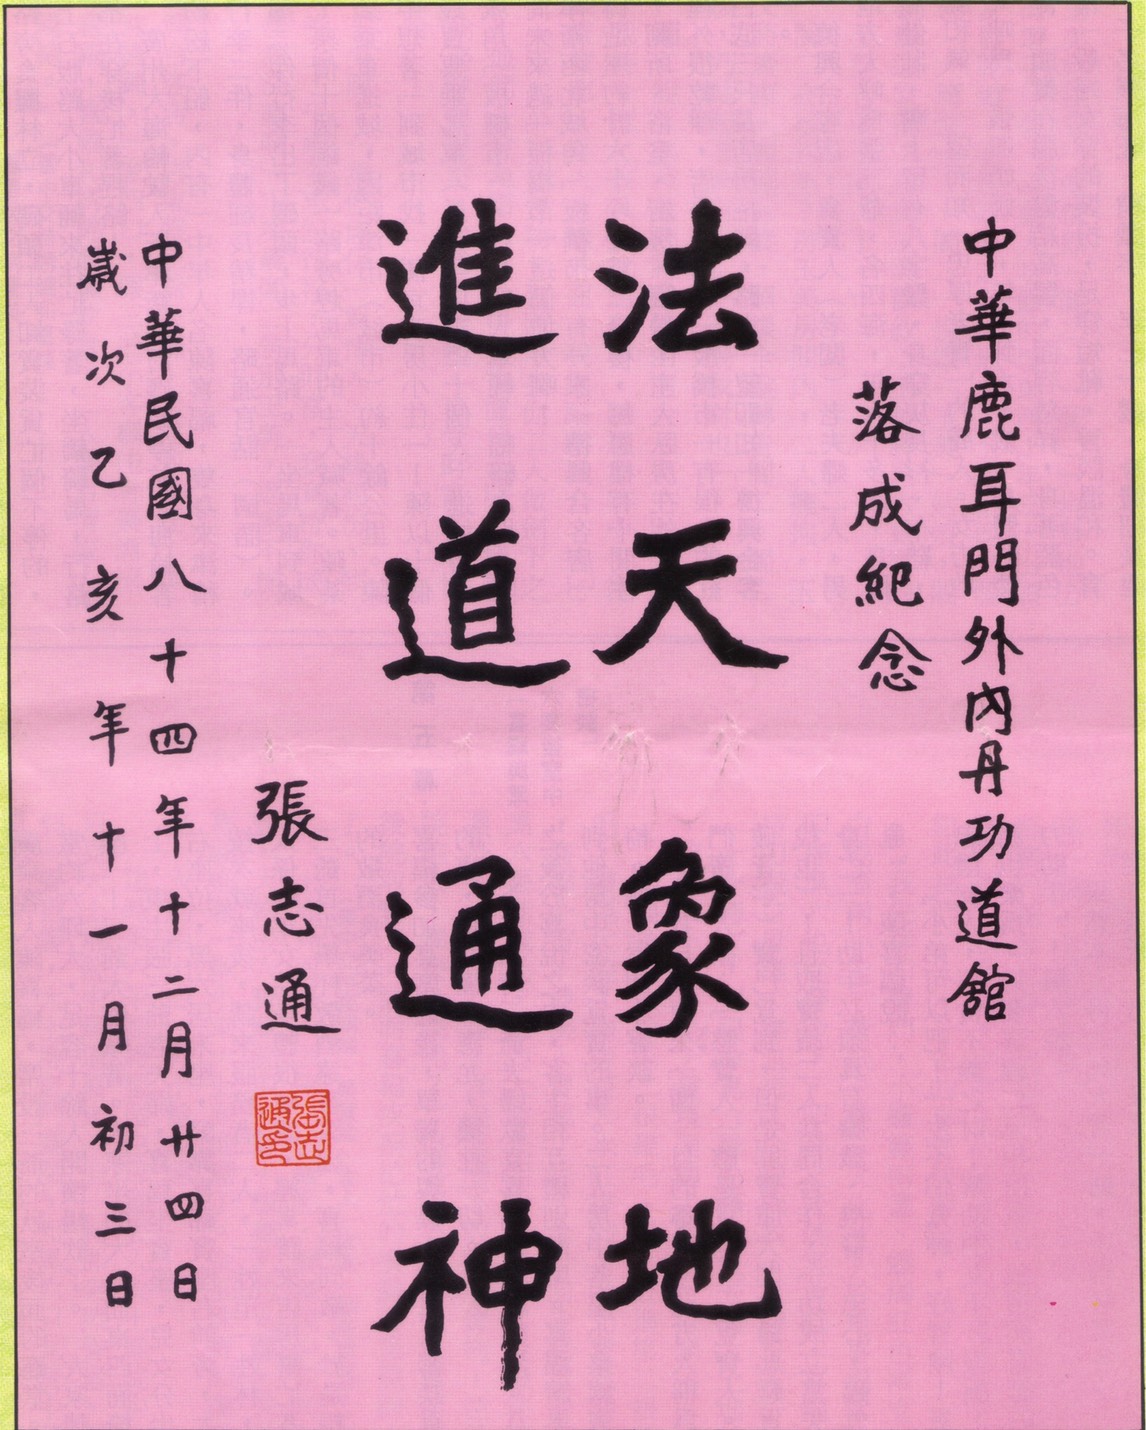 中華鹿耳門外內丹功道館
落成紀念
法天象地
進道通神
張志通
張志通印
中華民國八十四年十二月廿四日
歲次乙亥年十一月初三日